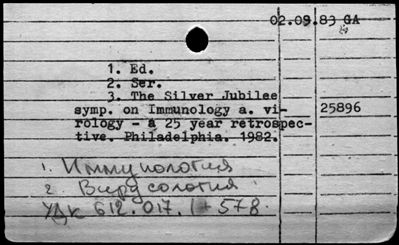 02.09.83 GA
1. Ed.
2. Ser.
3. The Silver Jubilee
symp. on Immunology a. vi-
rology - a 25 year retrospec-
tive. Philadelphia. 1982.
25896
1. Иммунология
2. Вирусология
УДК 612.017.1+578.